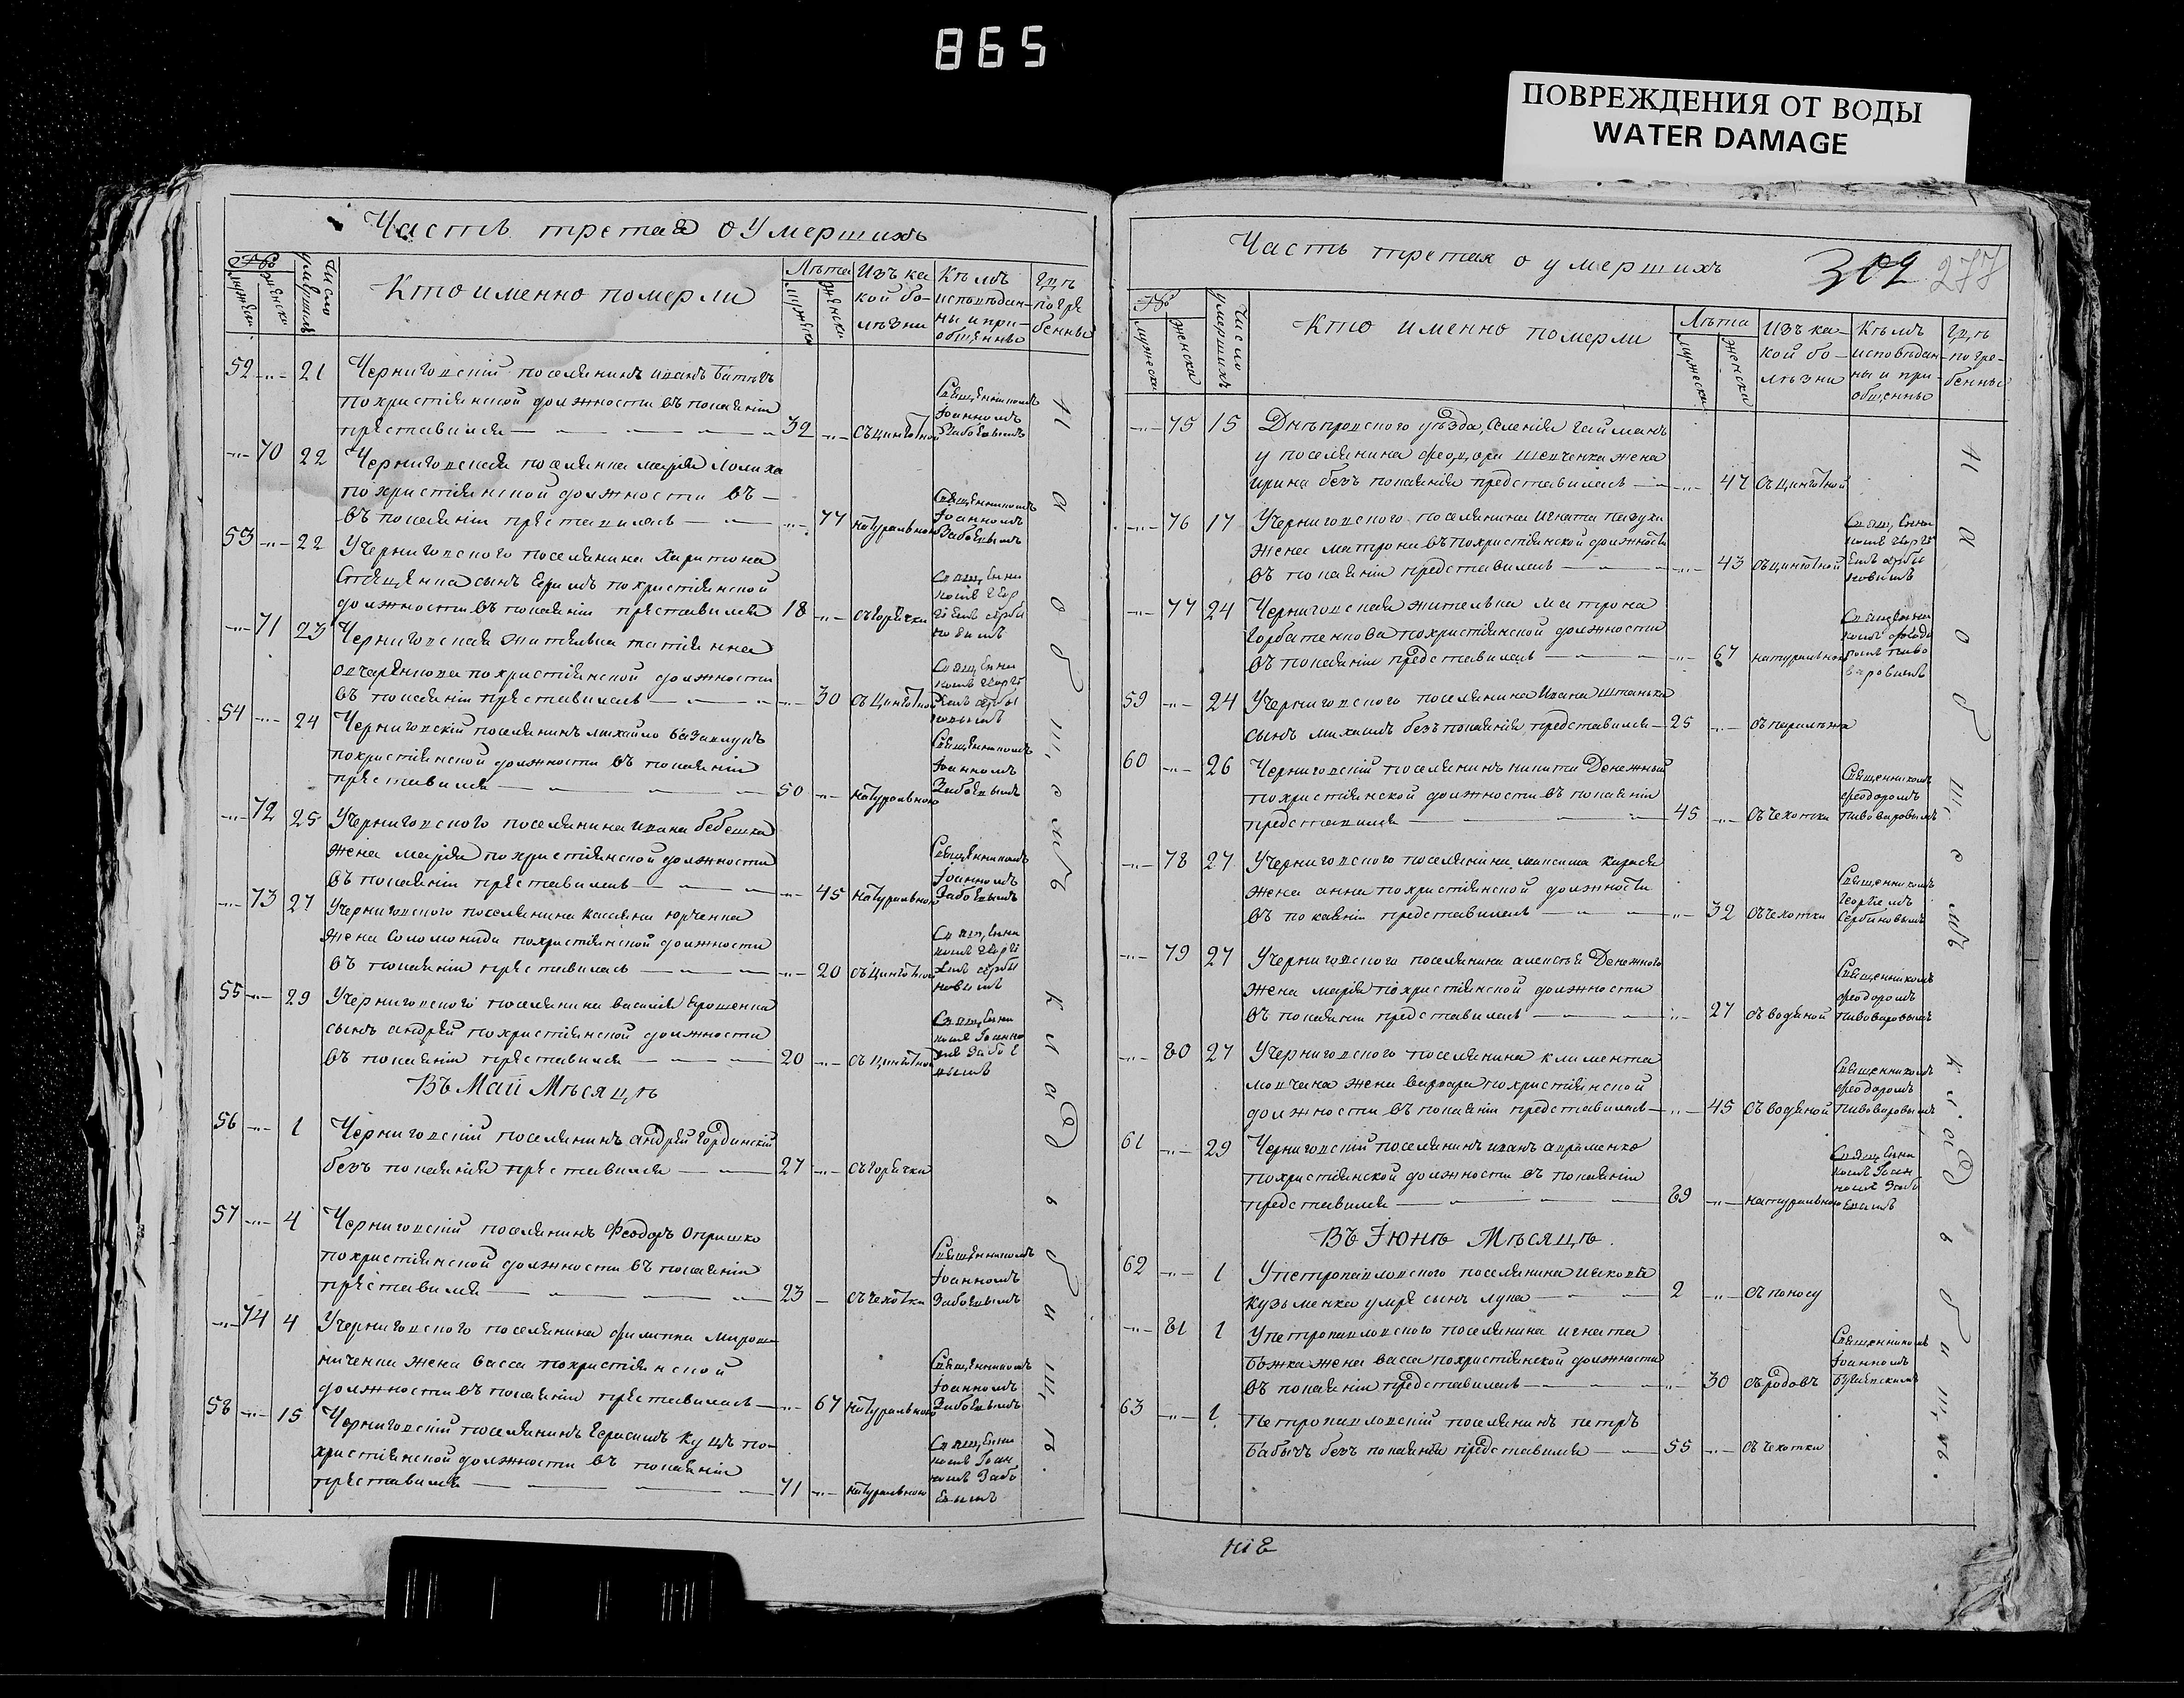 865
ПОВРЕЖДЕНИЯ ОТ ВОДЫ
WATER DAMAGE
Часть третая о Умершихъ
№
мужеска
женска
число умершихъ
Кто именно померли
Лѣта
мужеска
женска
Изъ ка
кой бо-
лѣзни
Кѣмъ
исповѣдан-
ны и при-
общенны
Гдѣ
погре
бенны
52 -"- 21 Черниговскій поселянинъ иванъ
похристіянской должности въ покаяніи
преставился 32 -"- съцинготной Священникомъ Іоанномъ Забоевымъ
-"- 70 22 Черниговская поселянка марія
похристіянской должности въ-
въ покаяніи преставилась -"- 77 натурально Священникомъ Іоанномъ Забоевымъ
53 -"- 22 Учерниговского поселянина Харитона
сынъ Ефимъ похристіянской
должности въ покаяніи преставился 18 -"- съгорячки Священникомъ
-"- 71 23 Черниговская жителька татіянна
овчаренкова похристіянской должности
въ покаяніи преставилась -"- 30 съцинготной Священникомъ
54 -"- 24 Черниговскій поселянинъ михайло базавлукъ
похристіянской должности въ покаяніи
преставился 50 -"- натурально Священникомъ Іоанномъ Забоевымъ
-"- 72 25 Учерниговского поселянина ивана бебешка
жена марія похристіянской должности
въ покаяніи преставилась -"- 45 натурально Священникомъ Іоанномъ Забоевымъ
-"- 73 27 Учерниговского поселянина касіяна юрченка
жена Соломонида похристіянской должности
въ покаяніи преставилась -"- 20 съцинготной Священникомъ
55 -"- 29 Учерниговского поселянина василія Ерошенка
сынъ андрей похристіянской должности
въ покаяніи преставился 20 -"- съцинготной Священникомъ
Въ Май Мѣсяцѣ
56 -"- 1 Черниговскій поселянинъ андрей гординскій
безъ покаянія преставился 27 -"- съгорячки
57 -"- 4 Черниговскій поселянинъ Феодоръ Опришко
похристіянской должности въ покаяніи
преставился 23 - съчехотки Священникомъ Іоанномъ Забоевымъ
-"- 74 4 Учерниговского поселянина филиппа мирош
ниченка жена васса похристіянской
должности въ покаяніи преставилась -"- 67 натурально Священникомъ Іоанномъ Забоевымъ
58 -"- 15 Черниговскій поселянинъ Герасимъ куцъ по-
христіянской должности въ покаяніи
преставился 71 -"- натурально
На общемъ кладбищѣ.
Часть третая о умершихъ
302 277
№
мужеска
женска
число умершихъ
Кто именно померли
Лѣта
мужеска
женска
Изъ ка-
кой бо-
лѣзни
Кѣмъ
исповѣдан-
ны и при-
общенны
Гдѣ
погре-
бенны
-"- 75 15 Днѣпровского уѣзда, Селенія
у поселянина феодора шевченка жена
ирина безъ покаянія представилась -"- 47 съцинготной
-"- 76 17 Учерниговского поселянина игната
жена матрона въ похристіянской должности
въ покаяніи представилась -"- 43 съцинготной
-"- 77 24 Черниговская жителька матрона
горбатенкова похристіянской должности
въ покаяніи представилась -"- 67 натурально
59 -"- 24 Учерниговского поселянина ивана штанька
сынъ михаилъ безъ покаянія представился 25 -"-
60 -"- 26 Черниговскій поселянинъ никита Денежный
похристіянской должности въ покаяніи
представился 45 -"- съчехотки Священникомъ феодоромъ пивоваровымъ
-"- 78 27 Учерниговского поселянина максима
жена анна похристіянской должности
въ покаяніи представилась -"- 32 съчехотки Священникомъ Георгіемъ Сербиновымъ
-"- 79 27 Учерниговского поселянина алексѣя Денежного
жена марія похристіянской должности
въ покаяніи представилась -"- 27 съводяной Священникомъ феодоромъ пивоваровымъ
-"- 80 27 Учерниговского поселянина климента
мовчана жена варвара похристіянской
должности въ покаяніи представилась -"- 45 съводяной Священникомъ феодоромъ пивоваровымъ
61 -"- 29 Черниговскій поселянинъ иванъ авраменко
похристіянской должности въ покаяніи
представился 89 -"- натурально
Въ Іюнѣ Мѣсяцѣ.
62 -"- 1 Упетропавловского поселянина иякова
кузьменка умре сынъ лука 2 -"- съпоносу
-"- 81 1 Упетропавловского поселянина игната
божка жена васса похристіянской должности
въ покаяніи представилась -"- 30 съродовъ Священникомъ Іоанномъ
63 -"- 1 Петропавловскій поселянинъ петръ
бабычъ безъ покаянія представился 55 -"- съчехотки
На общемъ кладбищѣ.